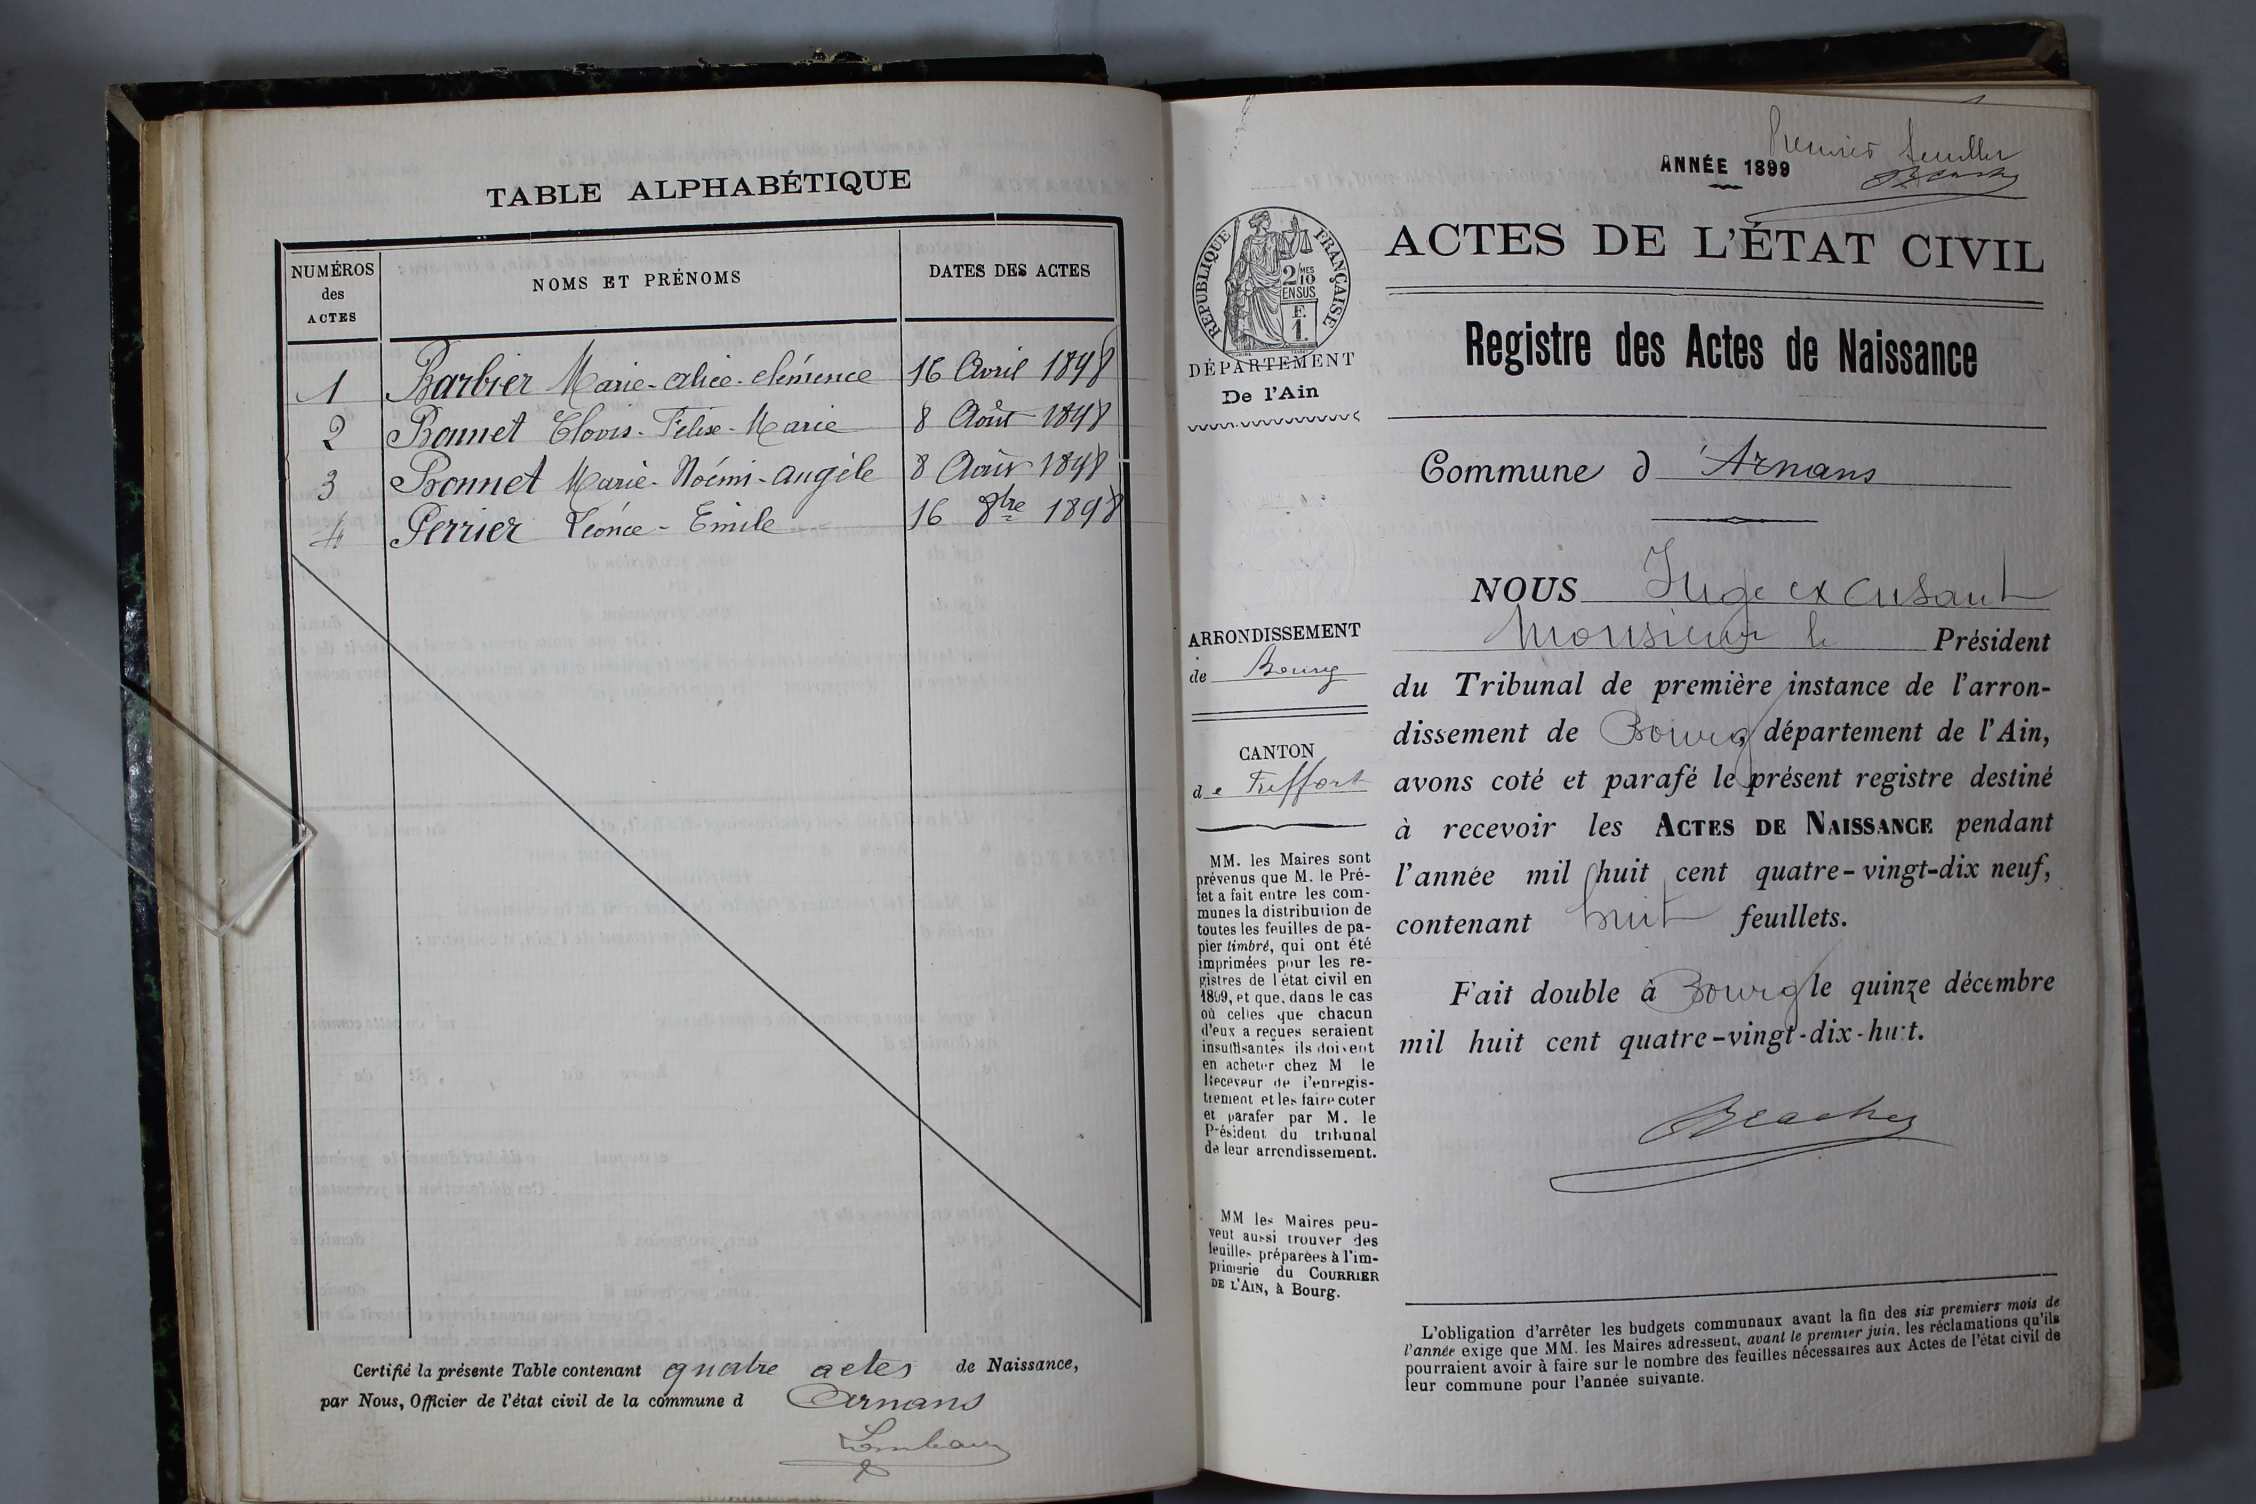 TABLE ALPHABÉTIQUE
NUMÉROS des ACTES
NOMS ET PRÉNOMS
DATES DES ACTES
1 Barbier Marie-alice-clémence 16 Avril 1898
2 Bonnet Clovis-Félix-Marie 8 Août 1898
3 Bonnet Marie-Noémi-angèle 8 Août 1898
4 Perrier Léonce-Emile 16 8bre 1898
Certifié la présente Table contenant quatre actes de Naissance,
par Nous, Officier de l'état civil de la commune d Arnans
Premier feuillet
ANNÉE 1899
RÉPUBLIQUE FRANÇAISE
2/10 MES
EN SUS
F.
1.
DÉPARTEMENT
De l'Ain
ACTES DE L'ÉTAT CIVIL
Registre des Actes de Naissance
Commune d'Arnans
ARRONDISSEMENT
de Bourg
CANTON
de Treffort
MM. les Maires sont
prévenus que M. le Pré-
fet a fait entre les com-
munes la distribution de
toutes les feuilles de pa-
pier timbré, qui ont été
imprimées pour les re-
gistres de l'état civil en
1899, et que, dans le cas
où celles que chacun
d'eux a reçues seraient
insuffisantes ils doivent
en acheter chez M le
Receveur de l'enregis-
trement et les faire coter
et parafer par M. le
Président du tribunal
de leur arrondissement.
MM les Maires peu-
vent aussi trouver des
feuilles préparées à l'im-
primerie du COURRIER
DE L'AIN, à Bourg.
NOUS Juge excusant
Monsieur le Président
du Tribunal de première instance de l'arron-
dissement de Bourg, département de l'Ain,
avons coté et parafé le présent registre destiné
à recevoir les ACTES DE NAISSANCE pendant
l'année mil huit cent quatre-vingt-dix neuf,
contenant huit feuillets.
Fait double à Bourg le quinze décembre
mil huit cent quatre-vingt-dix-huit.
L'obligation d'arrêter les budgets communaux avant la fin des six premiers mois de
l'année exige que MM. les Maires adressent, avant le premier juin, les réclamations qu'ils
pourraient avoir à faire sur le nombre des feuilles nécessaires aux Actes de l'état civil de
leur commune pour l'année suivante.